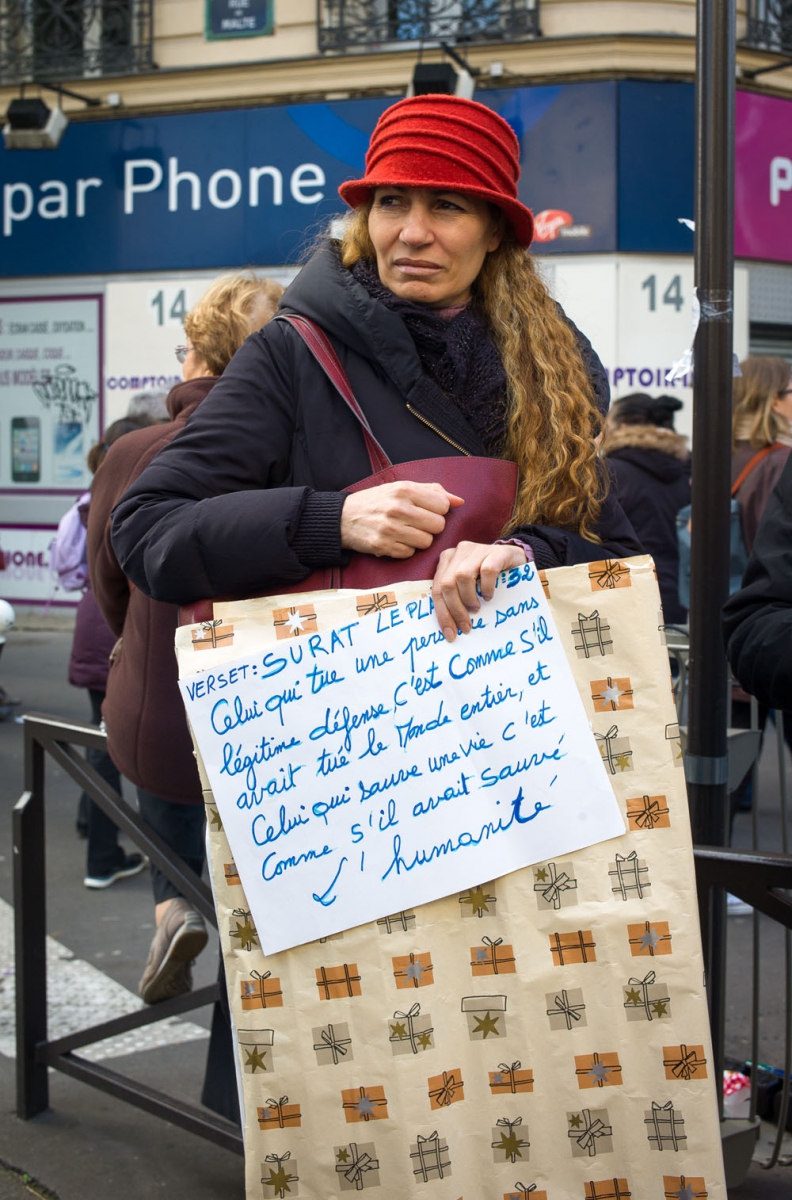 RUE
DE
MALTE
par Phone
Virgin
mobile
P
14
14
COMPTOIR
OMPTOIR
VERSET: SURAT LE PLA :32
Celui qui tue une sans
légitime défense, C'est Comme S'il
avait tué le Monde entier, et
Celui qui sauve une vie C'est
Comme s'il avait sauvé
l'humanité